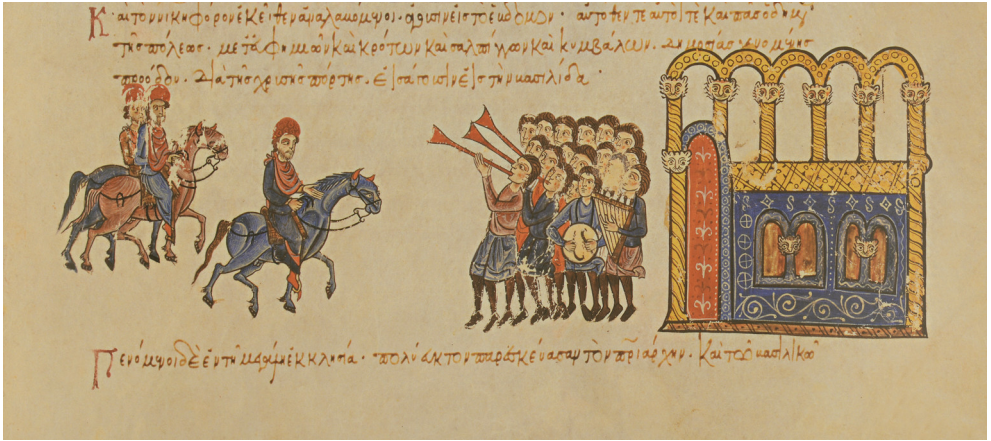 Κ αὶ τὸν νικηφόρον ἐκεῖθεν ἀναλαβόμενοι· ἄγουσιν εἰς τὸ ἕβδομον· αὐτόθεν τε αὐτοί τε καὶ πᾶς ὁ δῆμος
τῆς πόλεως· μετ' εὐφημιῶν καὶ κρότων καὶ σαλπίγγων καὶ κυμβάλων· δημοσίας γενομένης
προόδου· διὰ τῆς χρυσῆς πόρτης· εἰσάγουσιν εἰς τὴν βασιλίδα·
Γενόμενοι δὲ ἐν τῇ μεγάλῃ ἐκκλησίᾳ· πολύευκτον παρεσκεύασαν τὸν πριάρχην· καὶ τῷ βασιλικῷ